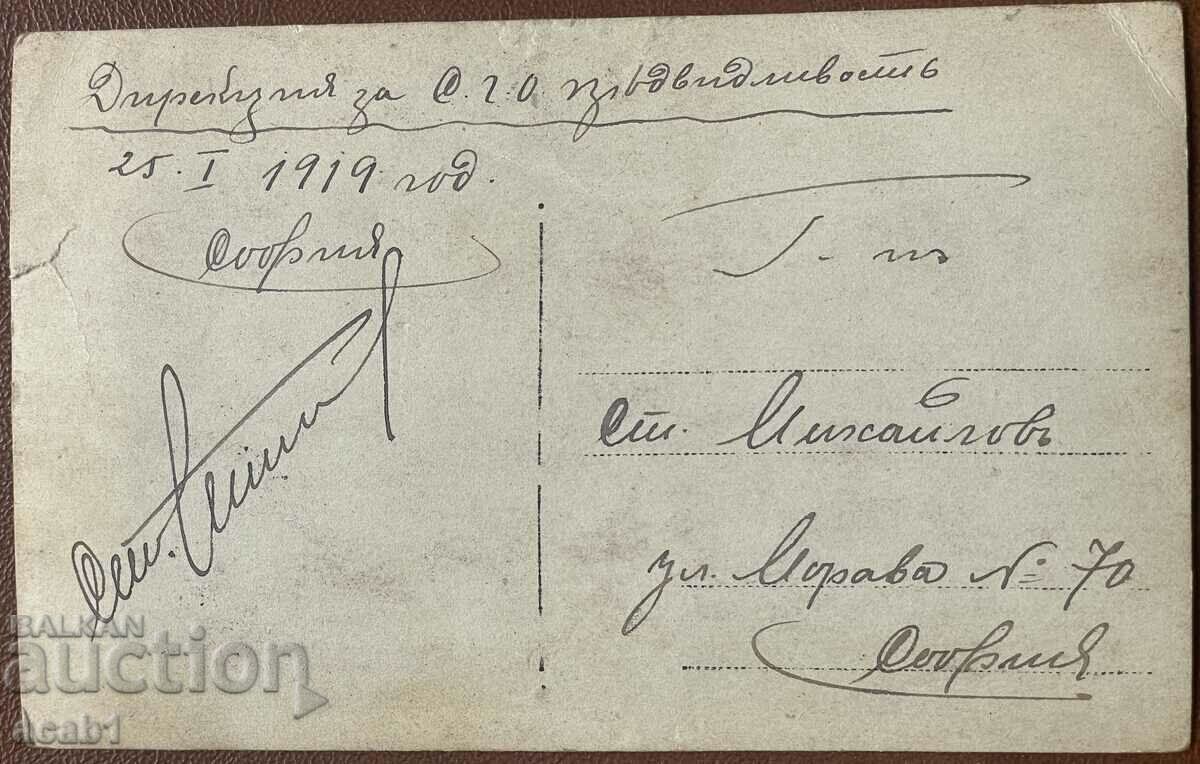 Дирекция за С. г. О. предвидливость
25. I 1919 год.
София
Ст.
Г-нъ
Ст. Михайловъ
ул. Морава № 70
София
BALKAN
auction
acab1